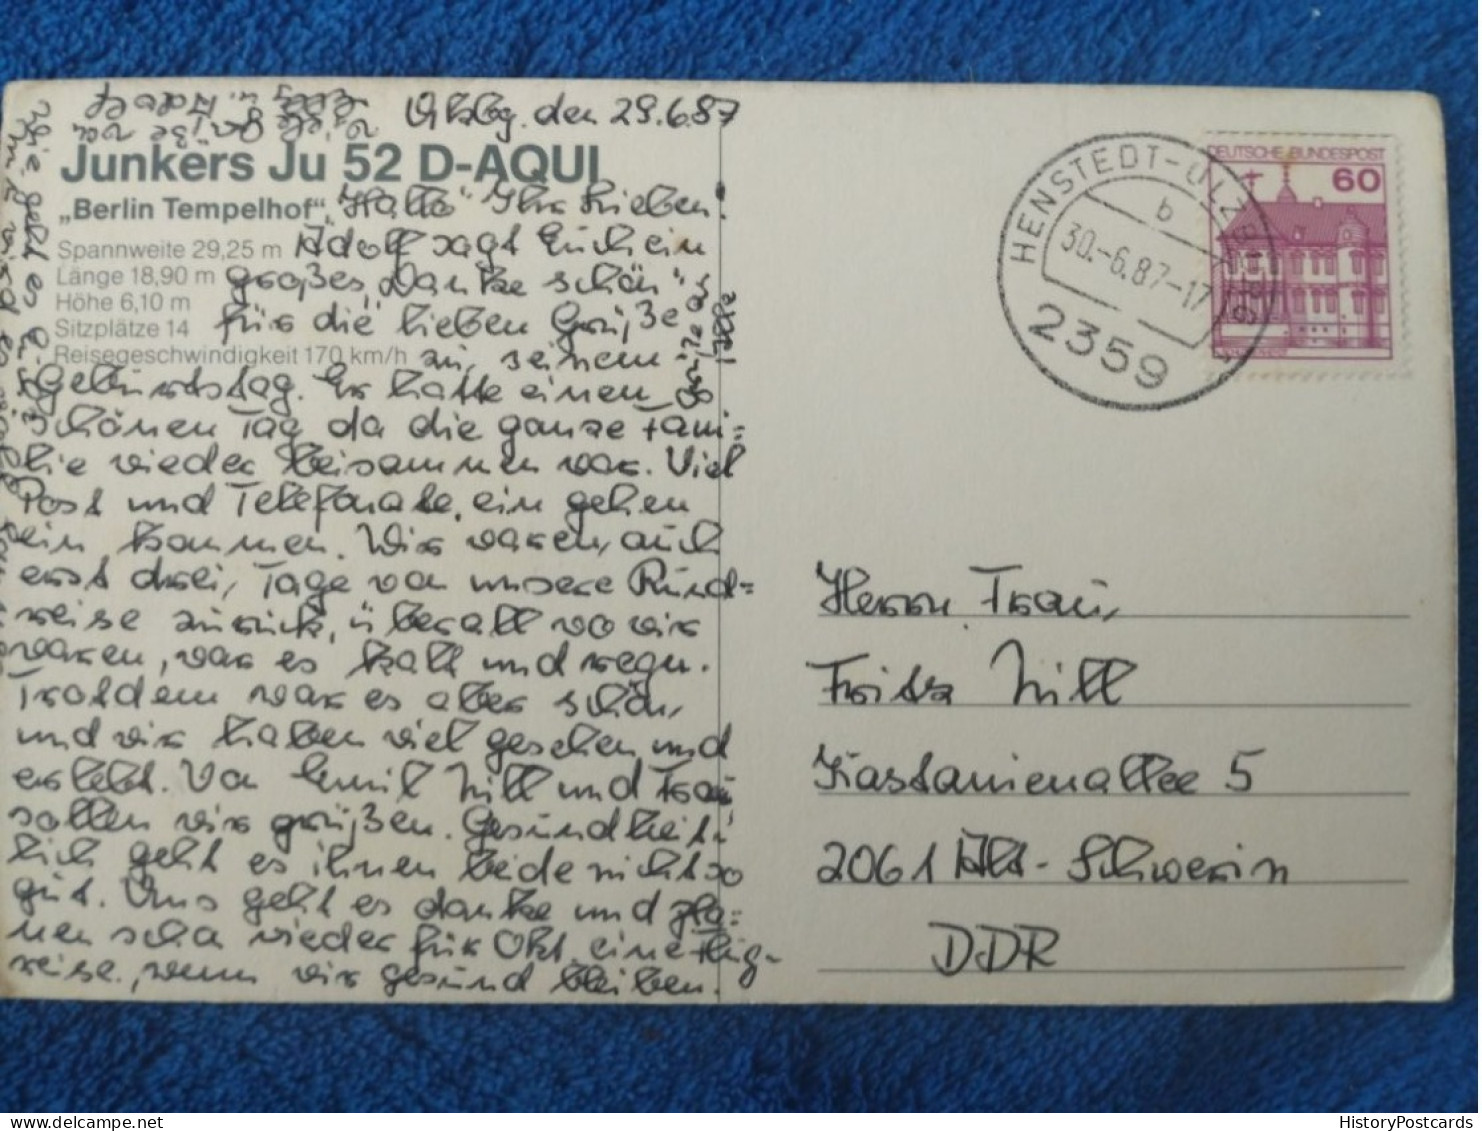 Ulzbg. den 29.6.87
Junkers Ju 52 D-AQUI
„Berlin Tempelhof“
Spannweite 29,25 m
Länge 18,90 m
Höhe 6,10 m
Sitzplätze 14
Reisegeschwindigkeit 170 km/h
"Hallo" Ihr Lieben!
Adolf sagt Euch ein
großes "Danke schön"
für die lieben Grüße
zu seinem
Geburtstag. Er hatte einen
schönen Tag da die ganze Fami-
lie wieder beisammen war. Viel
Post und Telefonate, ein gehen
ein kommen. Wir waren, auch
erst drei, Tage von unsere Rund=
reise zurück, überall wo wir
waren, war es kalt und regn.
Trotdem war es aber schön,
und wir haben viel gesehen und
erlebt. Von Emil Hill und Frau
sollen wir grüßen. Gesundheit-
lich geht es ihnen beide nicht so
gut. Uns geht es danke und pla-
nen scho wieder für Okt. eine Flug-
reise, wenn wir gesund bleiben.
Wie geht es
viel Grüße
u. Adolf
Grüße an
DEUTSCHE BUNDESPOST
60
HENSTEDT-ULZBURG
b
30.-6.87-17
2359
Herrn Frau,
Fritz Hill
Kastanienallee 5
2061 Alt-Schwerin
DDR
HistoryPostcards